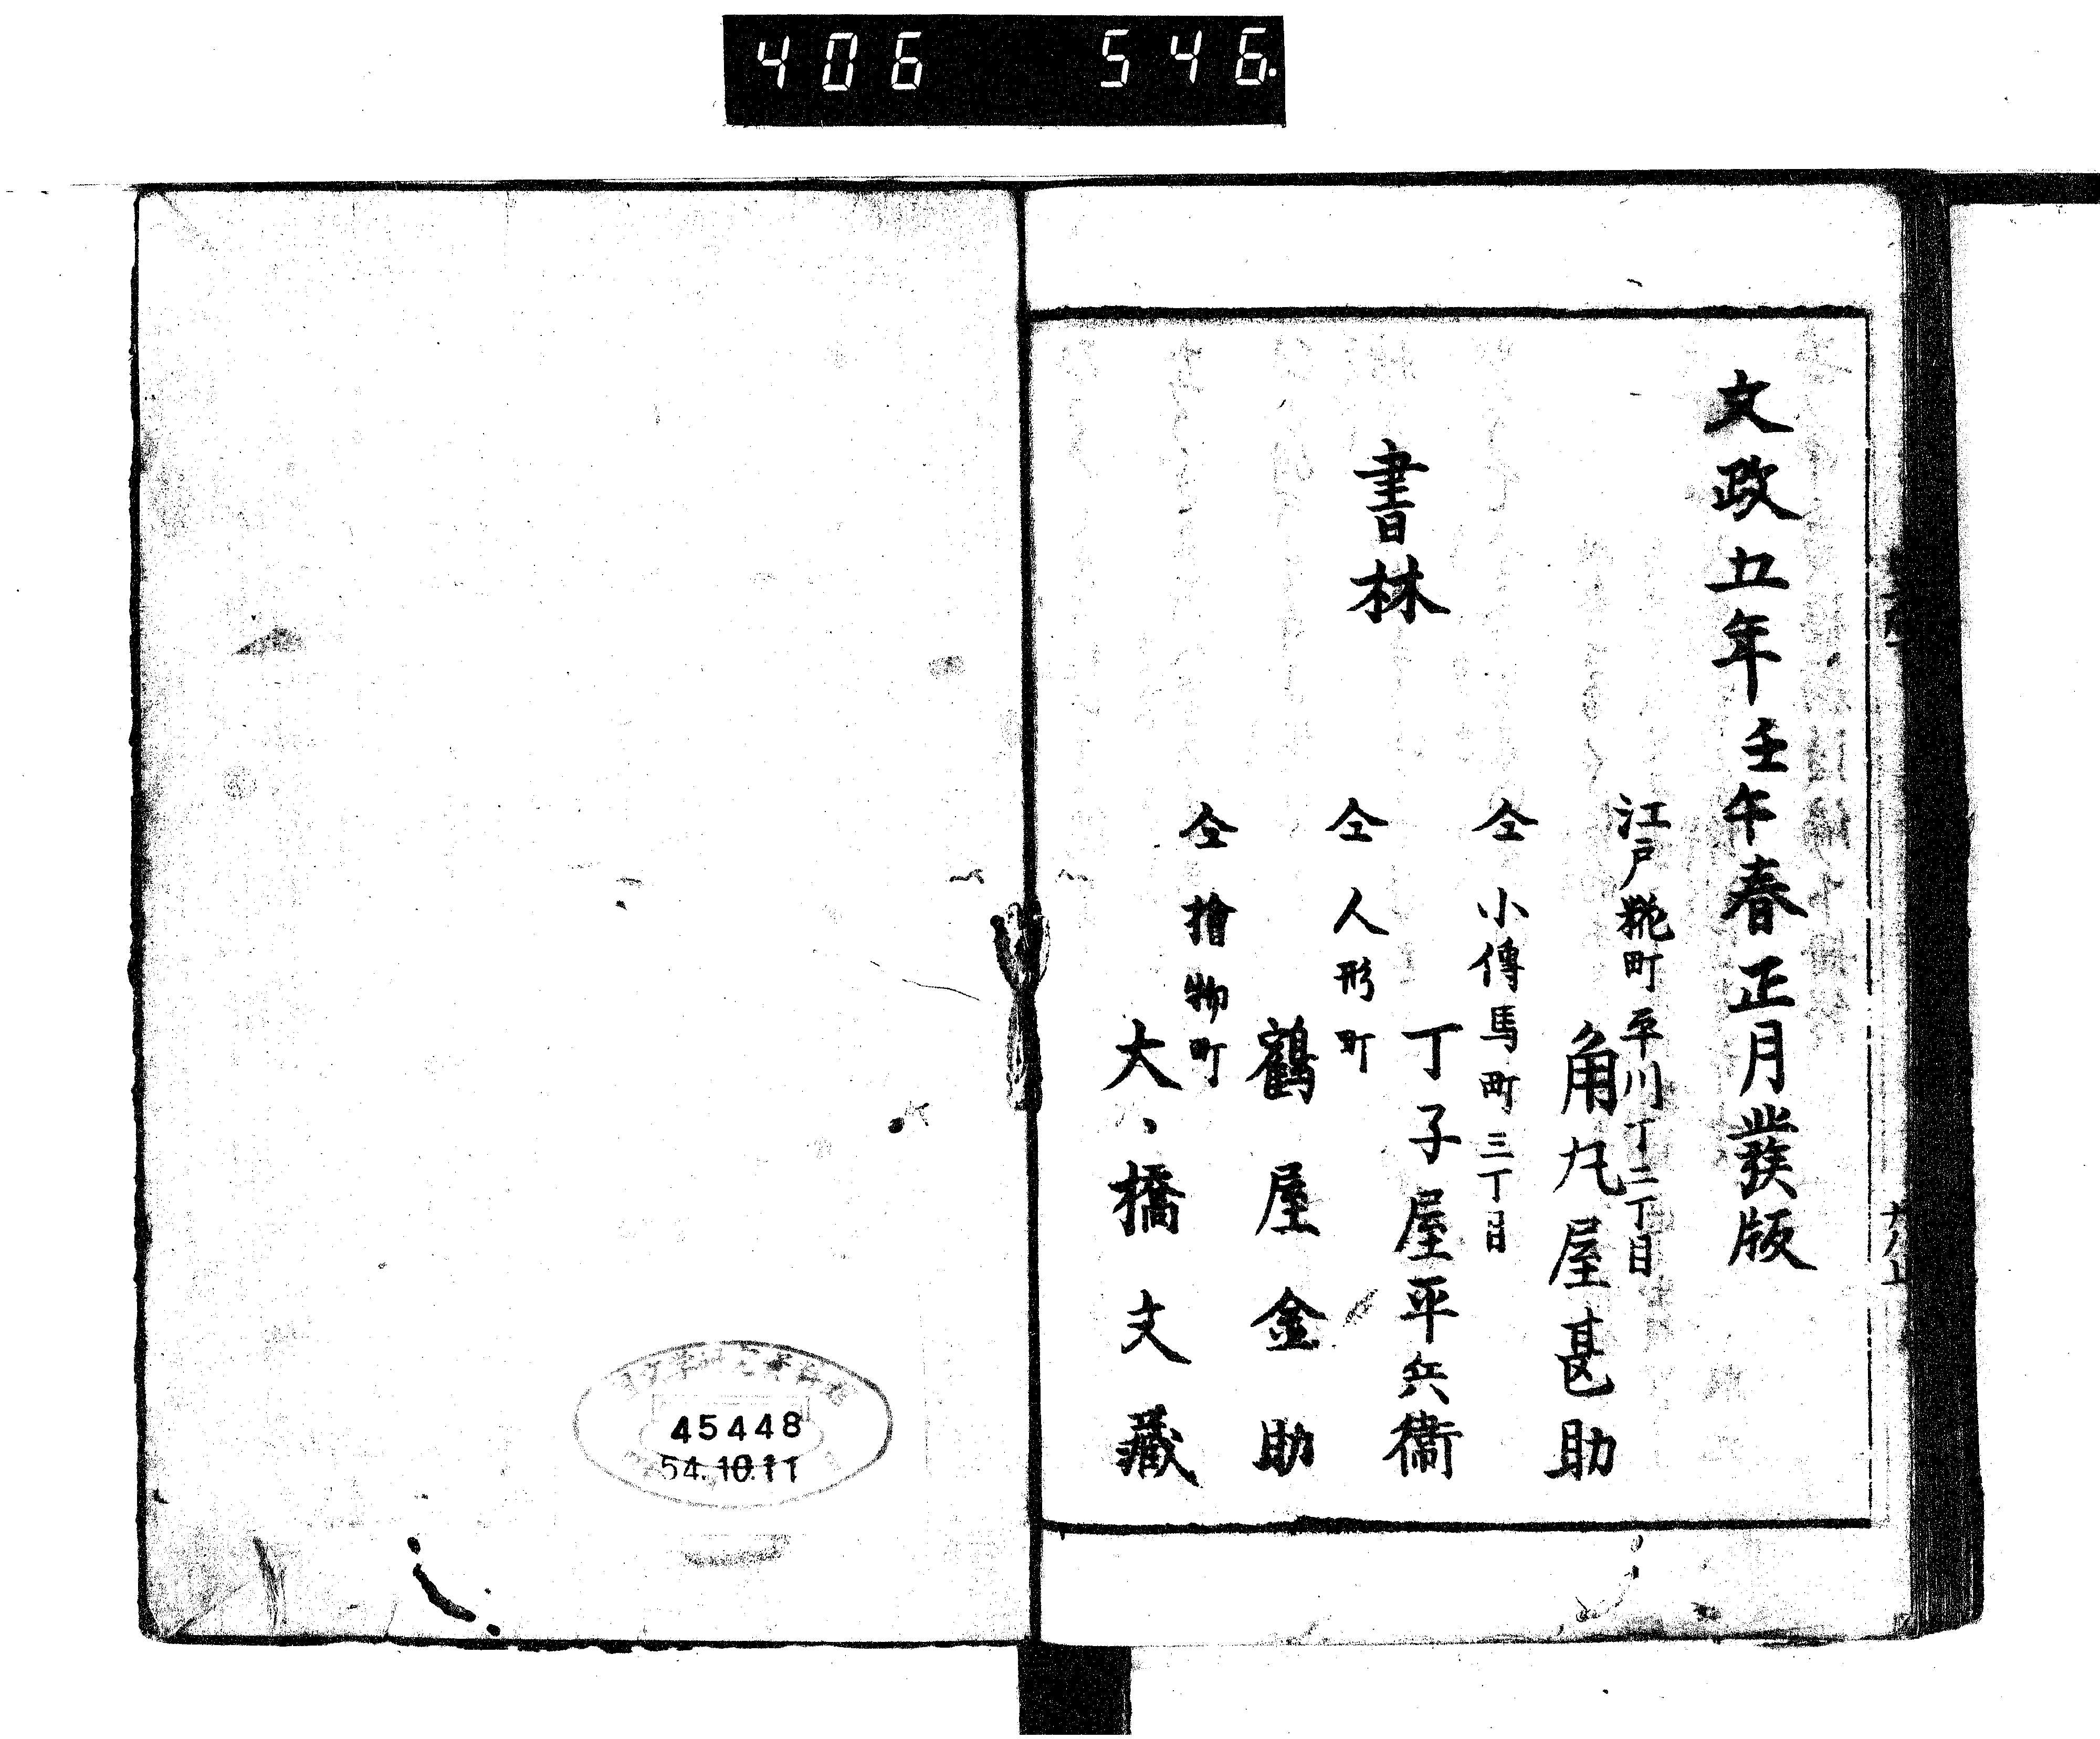 406 546.
文政五年壬午春正月發版
書林
江戸糀町平川丁二丁目
角丸屋甚助
仝小傳馬町三丁目
丁子屋平兵衞
仝人形町
鶴屋金助
仝檜物町
大橋文藏
45448
54.10.11